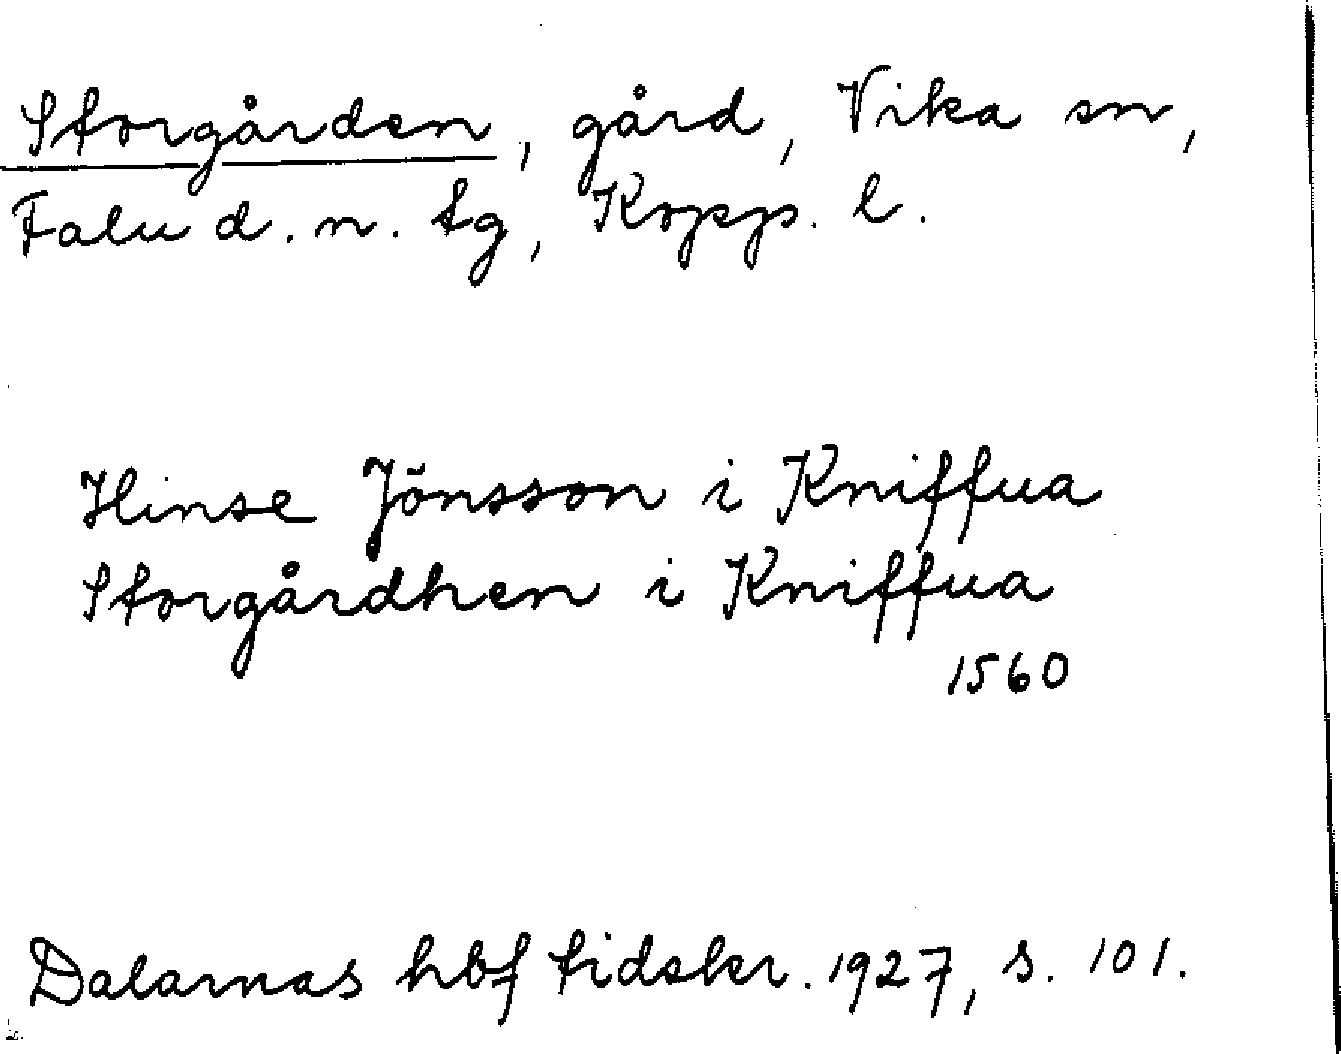 Storgården, gård, Vika sn,
Falu d. n. tg, Kopp. l.
Hinse Jönsson i Kniffua
Storgårdhen i Kniffua
1560
Dalarnas hbf tidskr. 1927, s. 101.